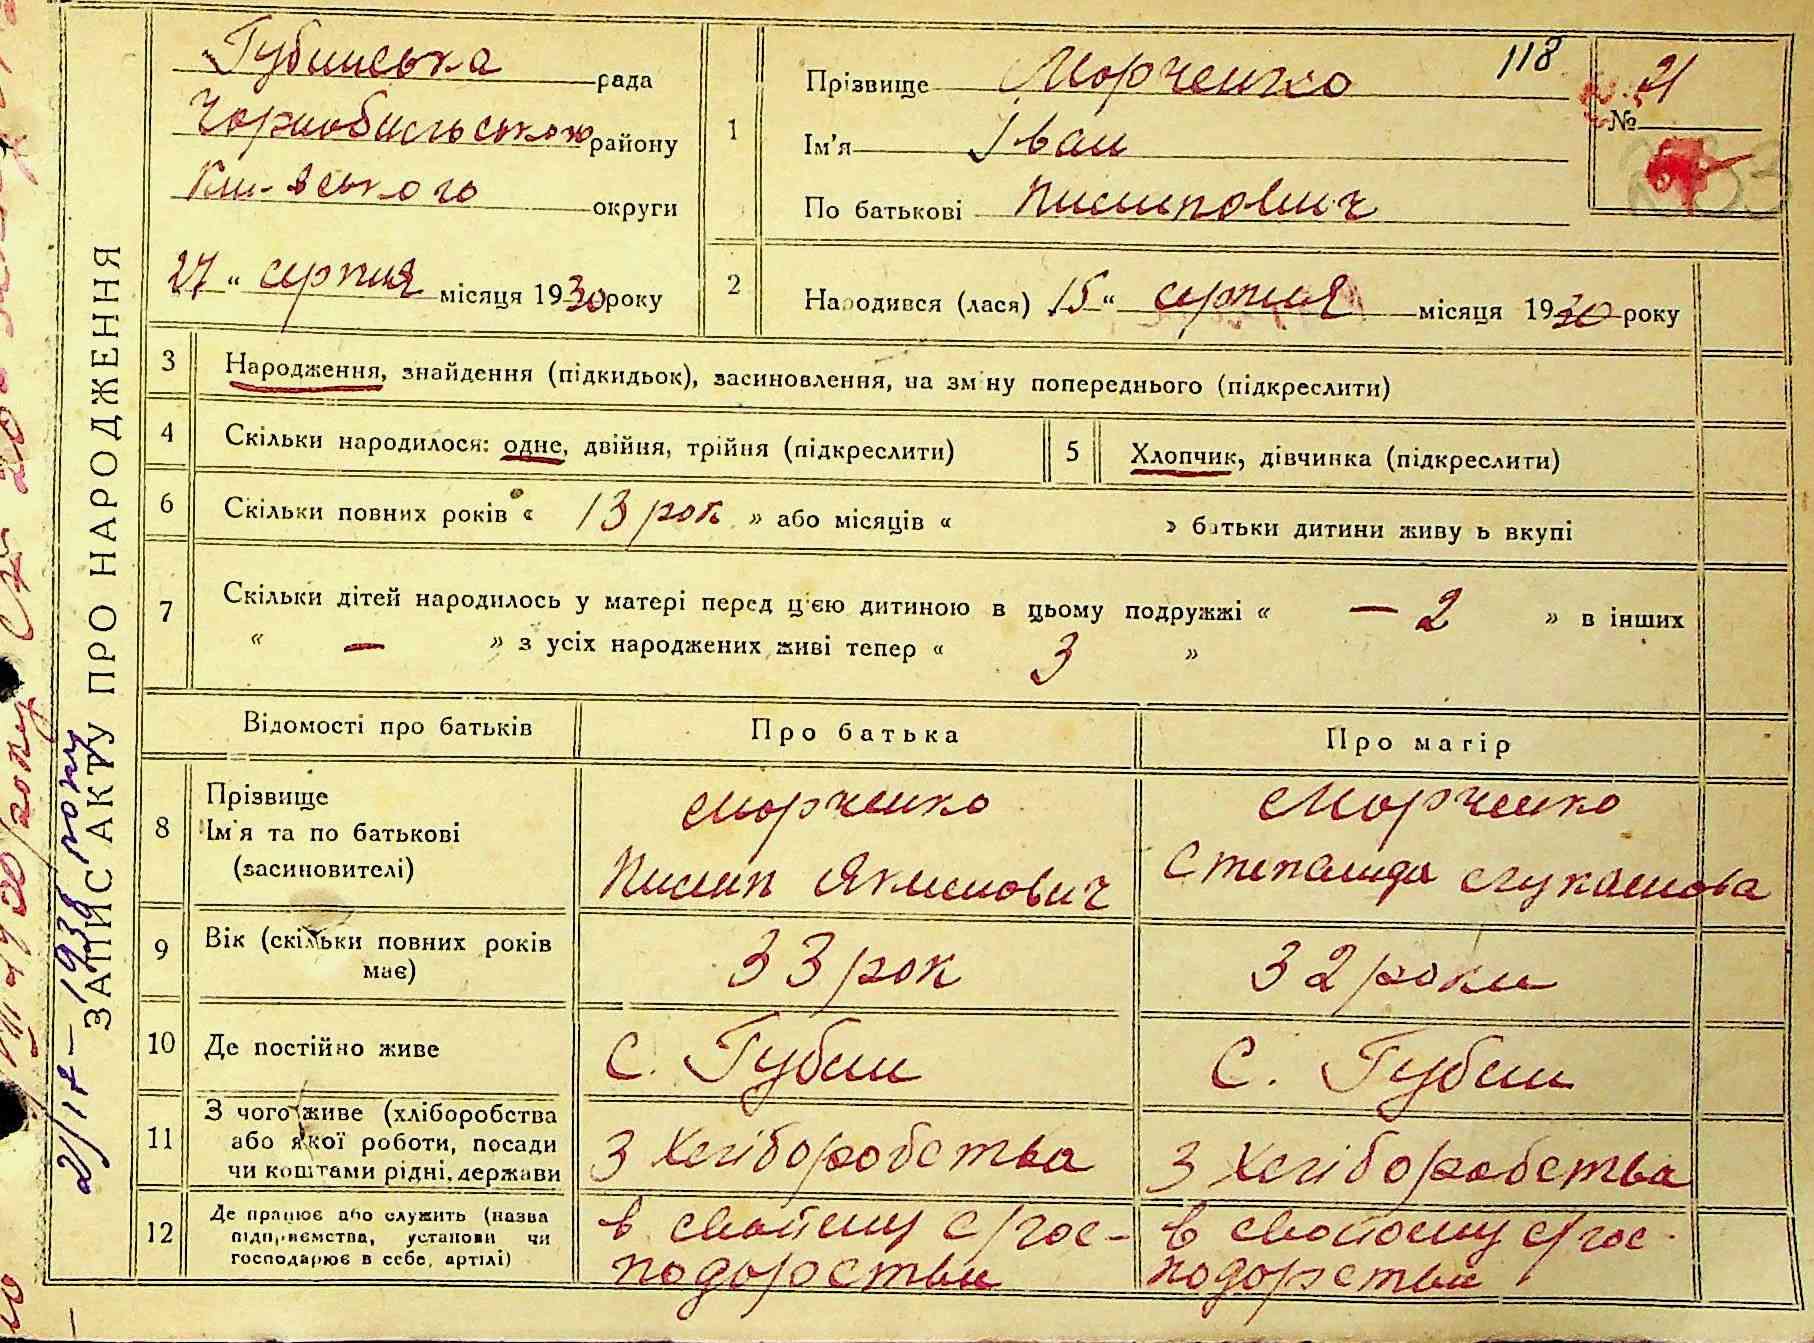 ЗАПИС АКТУ ПРО НАРОДЖЕННЯ
Губинська рада
Чорнобильського району
Київського округи
27 " серпня місяця 1930 року
118
№ 21
1
Прізвище Марченко
Ім'я Іван
По батькові Пилипович
2
Народився (лася) 15 " серпня місяця 1930 року
3 Народження, знайдення (підкидьок), засиновлення, на зміну попереднього (підкреслити)
4 Скільки народилося: одне, двійня, трійня (підкреслити)
5 Хлопчик, дівчинка (підкреслити)
6 Скільки повних років « 13 рок » або місяців « » батьки дитини живуть вкупі
7 Скільки дітей народилось у матері перед цією дитиною в цьому подружжі « — 2 » в інших
« — » з усіх народжених живі тепер « 3 »
Відомості про батьків Про батька Про матір
8 Прізвище
Ім'я та по батькові
(засиновителі)
Марченко
Пилип Якимович
Марченко
Степанида Лукашова
9 Вік (скільки повних років
має)
33 рок
32 роки
10 Де постійно живе
С. Губин
С. Губин
11 З чого живе (хліборобства
або якої роботи, посади
чи коштами рідні, держави
З хліборобства
З хліборобства
12 Де працює або служить (назва
підприємства, установи чи
господарює в себе, артілі)
в свойому с/гос-
подорстви
в свойому с/гос-
подорстви